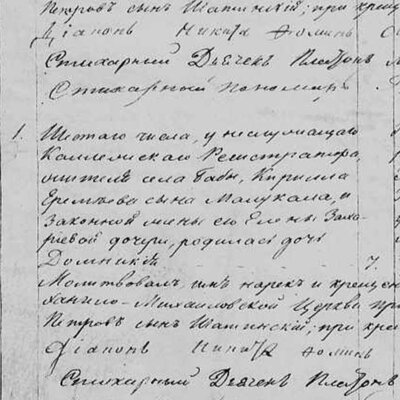 Петровъ сынъ Шатинскій; при креще
Діаконъ Никита Фоминъ
Стихарный Дьячекъ Платонъ
Стихарный Пономарь
1. Шестаго числа, у неслужащаго
Коллежскаго Регистратора,
жителя села Бабы, Кирилла
сына Малукала, и
законной жены его Елены Заха-
ріевой дочери, родилась дочь
Домникія 7.
Молитвовалъ, имя нарекъ и крещені
Михайловской Церкви при
Петровъ сынъ Шатинскій; при кре
Діаконъ Никита Фоминъ
Стихарный Дьячекъ Платонъ